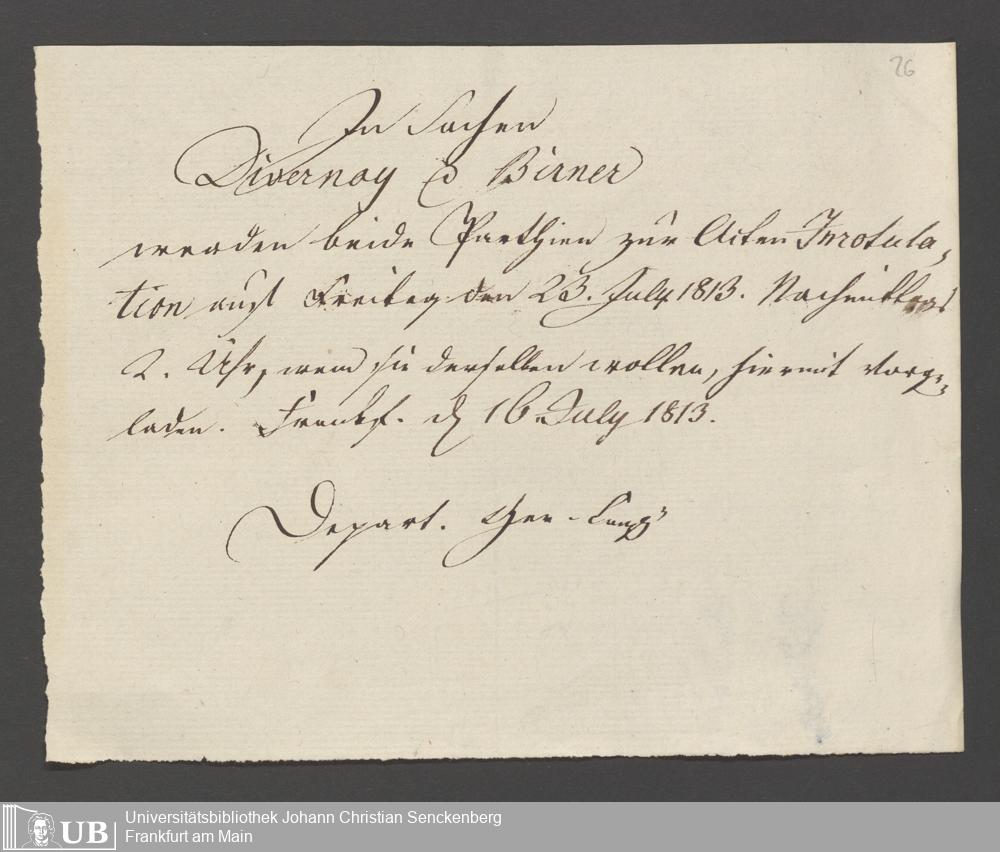 26
In Sachen
Divernoy Birner
werden beide Parthien zur Acten Inrotula,
tion auf Freitag den 23. July 1813. Nachmittags
2. Uhr, wenn sie derselben wollen, hiermit vorge,
laden. Frankf. d 16. July 1813.
Depart.
UB Universitätsbibliothek Johann Christian Senckenberg
Frankfurt am Main